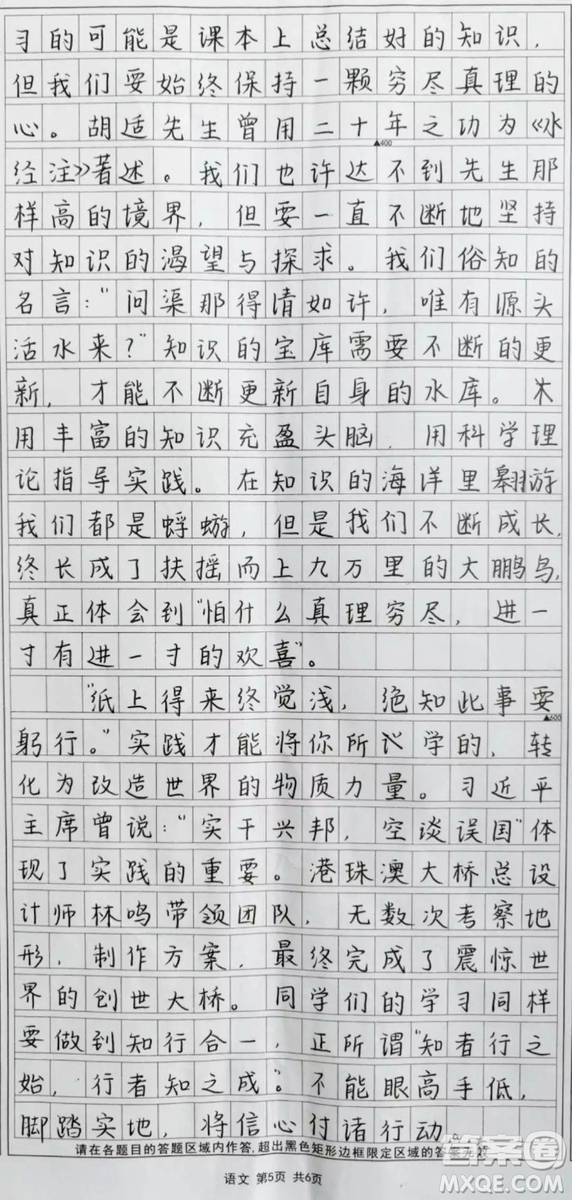 习的可能是课本上总结好的知识，
但我们要始终保持一颗穷尽真理的
心。胡适先生曾用二十年之功为《水
▲400
经注》著述。我们也许达不到先生那
样高的境界，但要一直不断地坚持
对知识的渴望与探求。我们俗知的
名言：“问渠那得清如许，唯有源头
活水来？”知识的宝库需要不断的更
新，才能不断更新自身的水库。
用丰富的知识充盈头脑，用科学理
论指导实践。在知识的海洋里翱游
我们都是蜉蝣，但是我们不断成长，
终长成了扶摇而上九万里的大鹏鸟，
真正体会到“怕什么真理穷尽，进一
寸有进一寸的欢喜”。
“纸上得来终觉浅，绝知此事要
▲600
躬行。”实践才能将你所学的，转
化为改造世界的物质力量。习近平
主席曾说：“实干兴邦，空谈误国”体
现了实践的重要。港珠澳大桥总设
计师林鸣带领团队，无数次考察地
形，制作方案，最终完成了震惊世
界的创世大桥。同学们的学习同样
要做到知行合一，正所谓“知者行之
始，行者知之成”。不能眼高手低，
脚踏实地，将信心付诸行动。
请在各题目的答题区域内作答，超出黑色矩形边框限定区域的答案无效
语文 第5页 共6页
答案圈
MXQE.COM